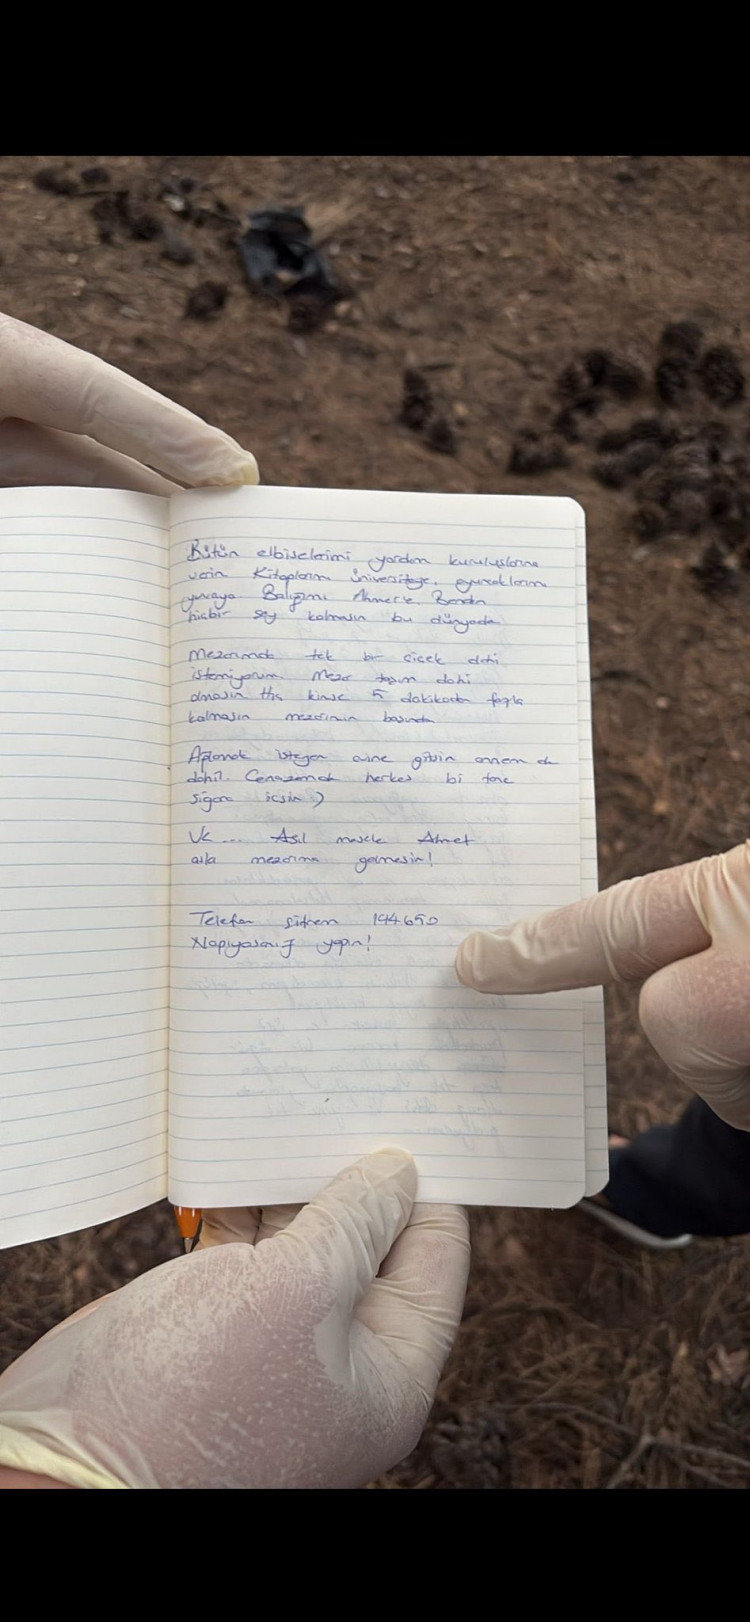 Bütün elbiselerimi yardım kuruluşlarına
verin Kitaplarımı üniversiteye, oyuncaklarımı
yuvaya. Balığımı Ahmet'e. Benden
hiçbir şey kalmasın bu dünyada
Mezarımda tek bir çiçek dahi
istemiyorum. Mezar taşım dahi
olmasın. Hiç kimse 5 dakikadan fazla
kalmasın mezarımın başında
Ağlamak isteyen evine gitsin annem de
dahil. Cenazemde herkes bi tane
sigara içsin :)
Ve... Asıl mesele Ahmet
asla mezarıma gelmesin!
Telefon şifrem 194650
Napıyosanız yapın!